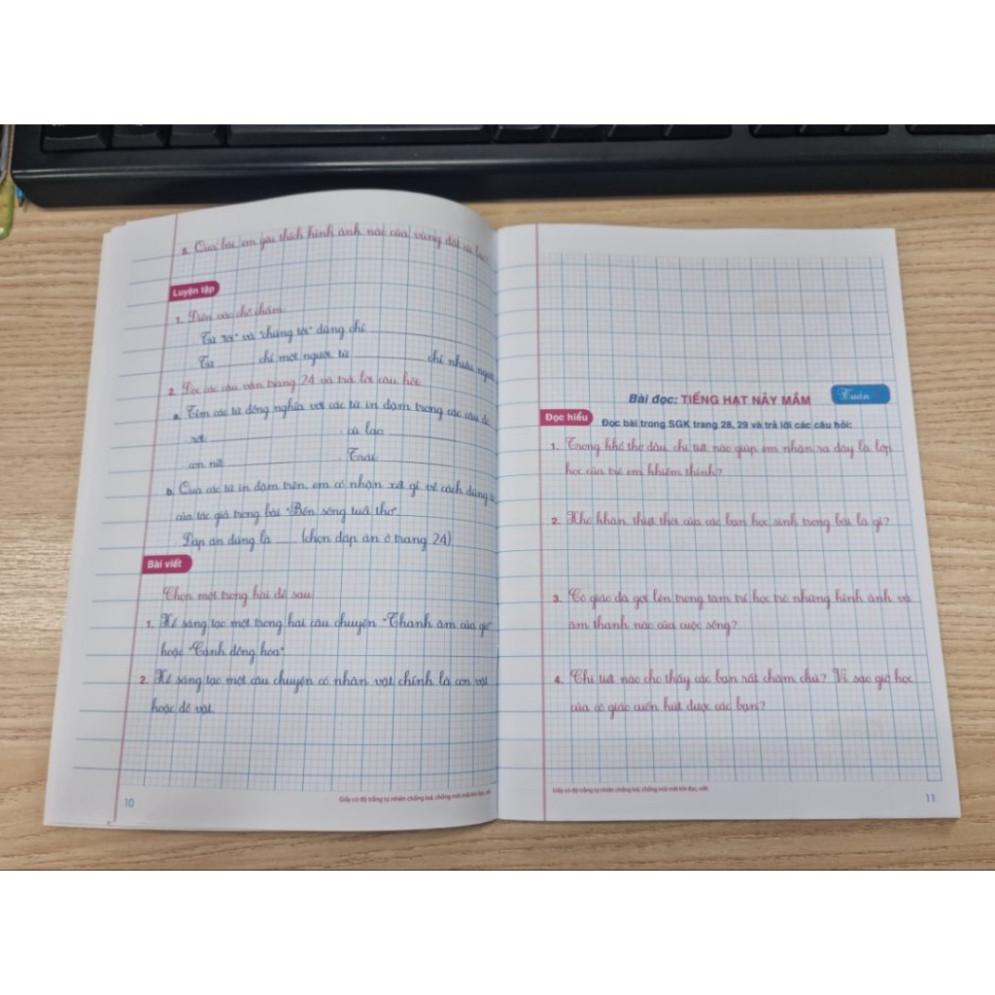 3. Qua bài em yêu thích hình ảnh nào của vùng đất cù lao?
Luyện tập
1. Điền vào chỗ chấm
Từ "tôi" và "chúng tôi" dùng chỉ
Từ chỉ một người từ chỉ nhiều người
2. Đọc các câu văn trang 24 và trả lời câu hỏi
a. Tìm các từ đồng nghĩa với các từ in đậm trong các câu đó
xứ cù lao
con nít Trái
b. Qua các từ in đậm trên, em có nhận xét gì về cách dùng từ
của tác giả trong bài "Bến sông tuổi thơ"
Đáp án đúng là (chọn đáp án ở trang 24)
Bài viết
Chọn một trong hai đề sau
1. Kể sáng tạo một trong hai câu chuyện "Thanh âm của gió"
hoặc "Cánh đồng hoa"
2. Kể sáng tạo một câu chuyện có nhân vật chính là con vật
hoặc đồ vật
Giấy có độ trắng tự nhiên chống loá, chống mỏi mắt khi đọc, viết
10
Tuần
Bài đọc: TIẾNG HẠT NẢY MẦM
Đọc hiểu
Đọc bài trong SGK trang 28, 29 và trả lời các câu hỏi:
1. Trong khổ thơ đầu, chi tiết nào giúp em nhận ra đây là lớp
học của trẻ em khiếm thính?
2. Khó khăn, thiệt thòi của các bạn học sinh trong bài là gì?
3. Cô giáo đã gợi lên trong tâm trí học trò những hình ảnh và
âm thanh nào của cuộc sống?
4. Chi tiết nào cho thấy các bạn rất chăm chú? Vì sao giờ học
của cô giáo cuốn hút được các bạn?
Giấy có độ trắng tự nhiên chống loá, chống mỏi mắt khi đọc, viết
11